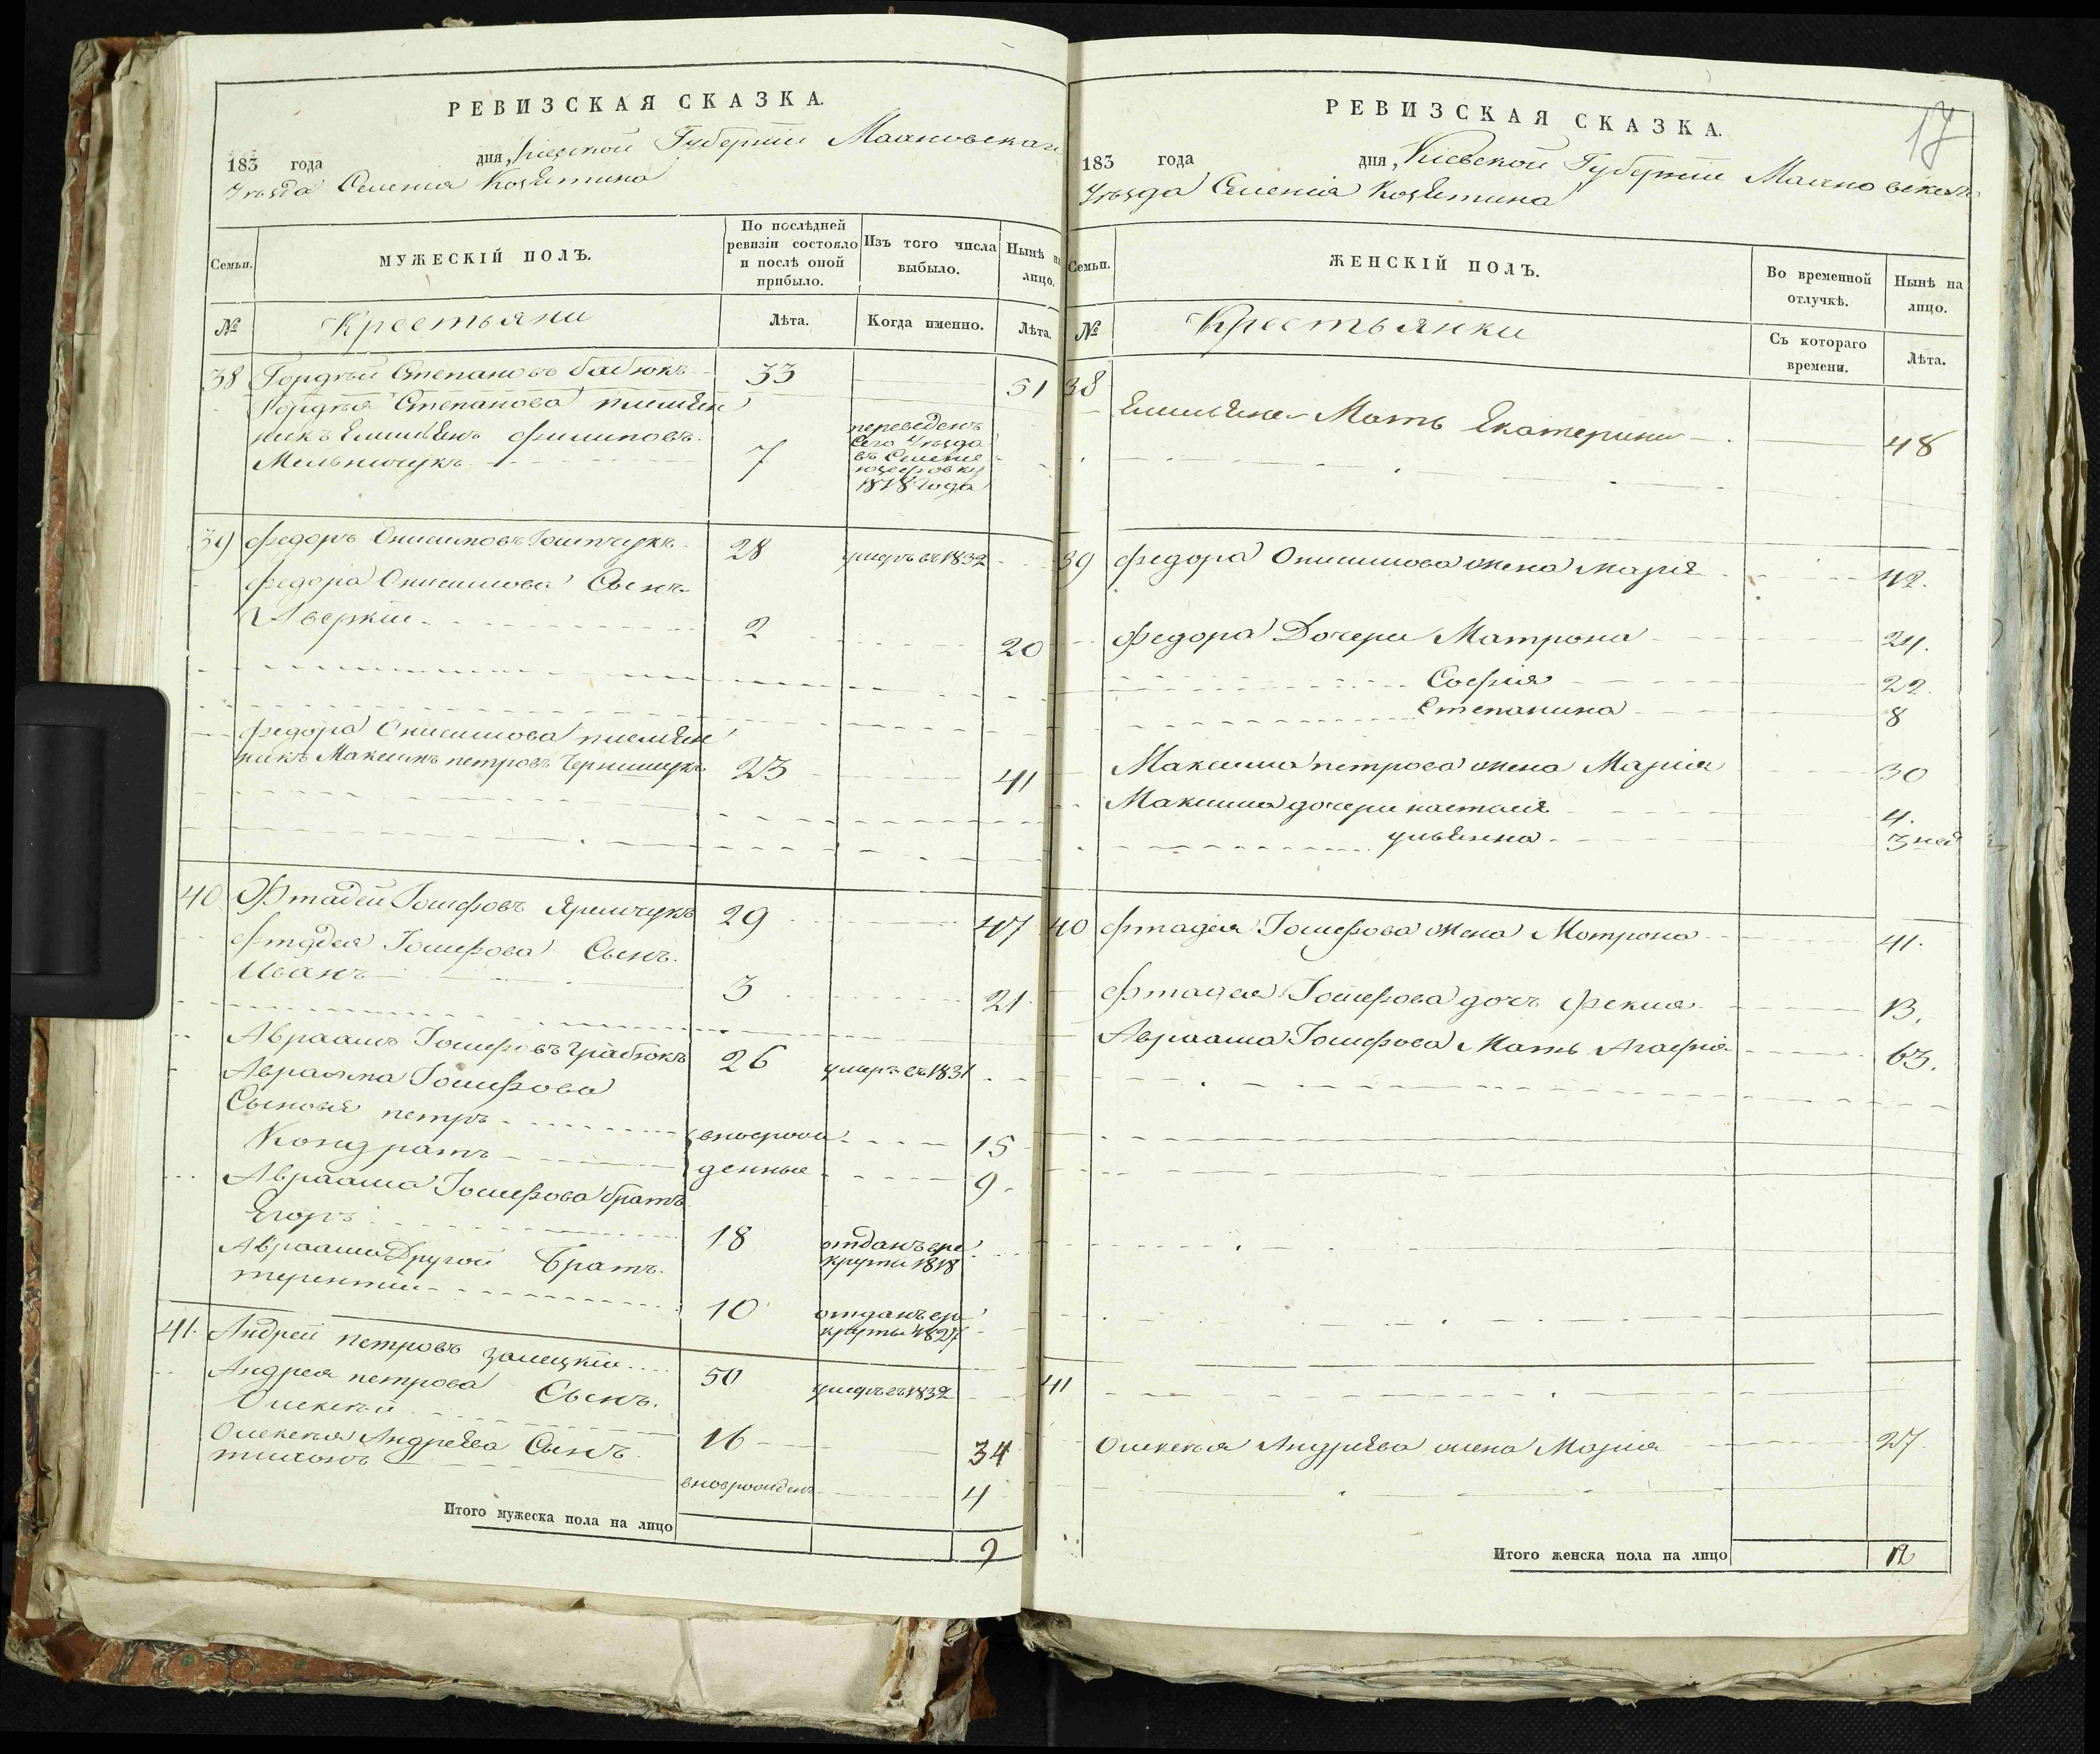 РЕВИЗСКАЯ СКАЗКА.
183 года дня, Кіевской Губерніи Махновскаго
Уѣзда Селенія Козятина
Семьи.
МУЖЕСКІЙ ПОЛЪ.
По послѣдней ревизіи состояло и послѣ оной прибыло.
Изъ того числа выбыло.
Нынѣ на лицо.
№
Крестьяни
Лѣта.
Когда именно.
Лѣта.
38 Гордѣй Степановъ бабюкъ 33 51
Гордѣя Степанова племян
никъ Емильянъ филиповъ
Мельничукъ 7
переведенъ
Сего Уѣзда
въ Селение
юзефовку
1818 года
39 федоръ Онисимовъ 28 умеръ въ 1832
федора Онисимова Сынъ
Аверкіи 2 20
федора Онисимова племян
никъ Максимъ петровъ Чернишукъ 23 41
40 Фтадей Іосифовъ Яремчукъ 29 47
фтадея Іосифова Сынъ
Иванъ 3 21
Авраамъ Іосифовъ Грабюкъ 26 умеръ въ 1831
Авраама Іосифова
Сыновья петръ вноврож 15
Кондратъ денные 9
Авраама Іосифова братъ
Егоръ 18 отданъ вре
круты 1818
Авраама Другой братъ
терентии 10 отданъ вре
круты 1827
41. Андреи петровъ залецкіи 50 умеръ въ 1832
Андрея петрова Сынъ
Олексѣй 16 34
Олексѣя Андреева Сынъ
тихонъ вноврожденъ 4
Итого мужеска пола на лицо 9
17
РЕВИЗСКАЯ СКАЗКА.
183 года дня, Кіевской Губерніи Махновскаго
Уѣзда Селенія Козятина
Семьи.
ЖЕНСКІЙ ПОЛЪ.
Во временной отлучкѣ.
Нынѣ на лицо.
№
Крестьянки
Съ котораго времени.
Лѣта.
38 Емильяна Мать Екатерина 48
39 федора Онисимова жена Мария 42.
федора Дочери Матрона 24.
София 22.
Степанина 8
Максима петрова жена Мария 30
Максима дочери настасія 4.
ульянна 3 нед
40 фтадея Іосифова жена Мотрона 41.
фтадея Іосифова дочь фекла 13.
Авраама Іосифова Мать Агафия 63.
41
Олексѣя Андреева жена Мария 27.
Итого женска пола на лицо 12